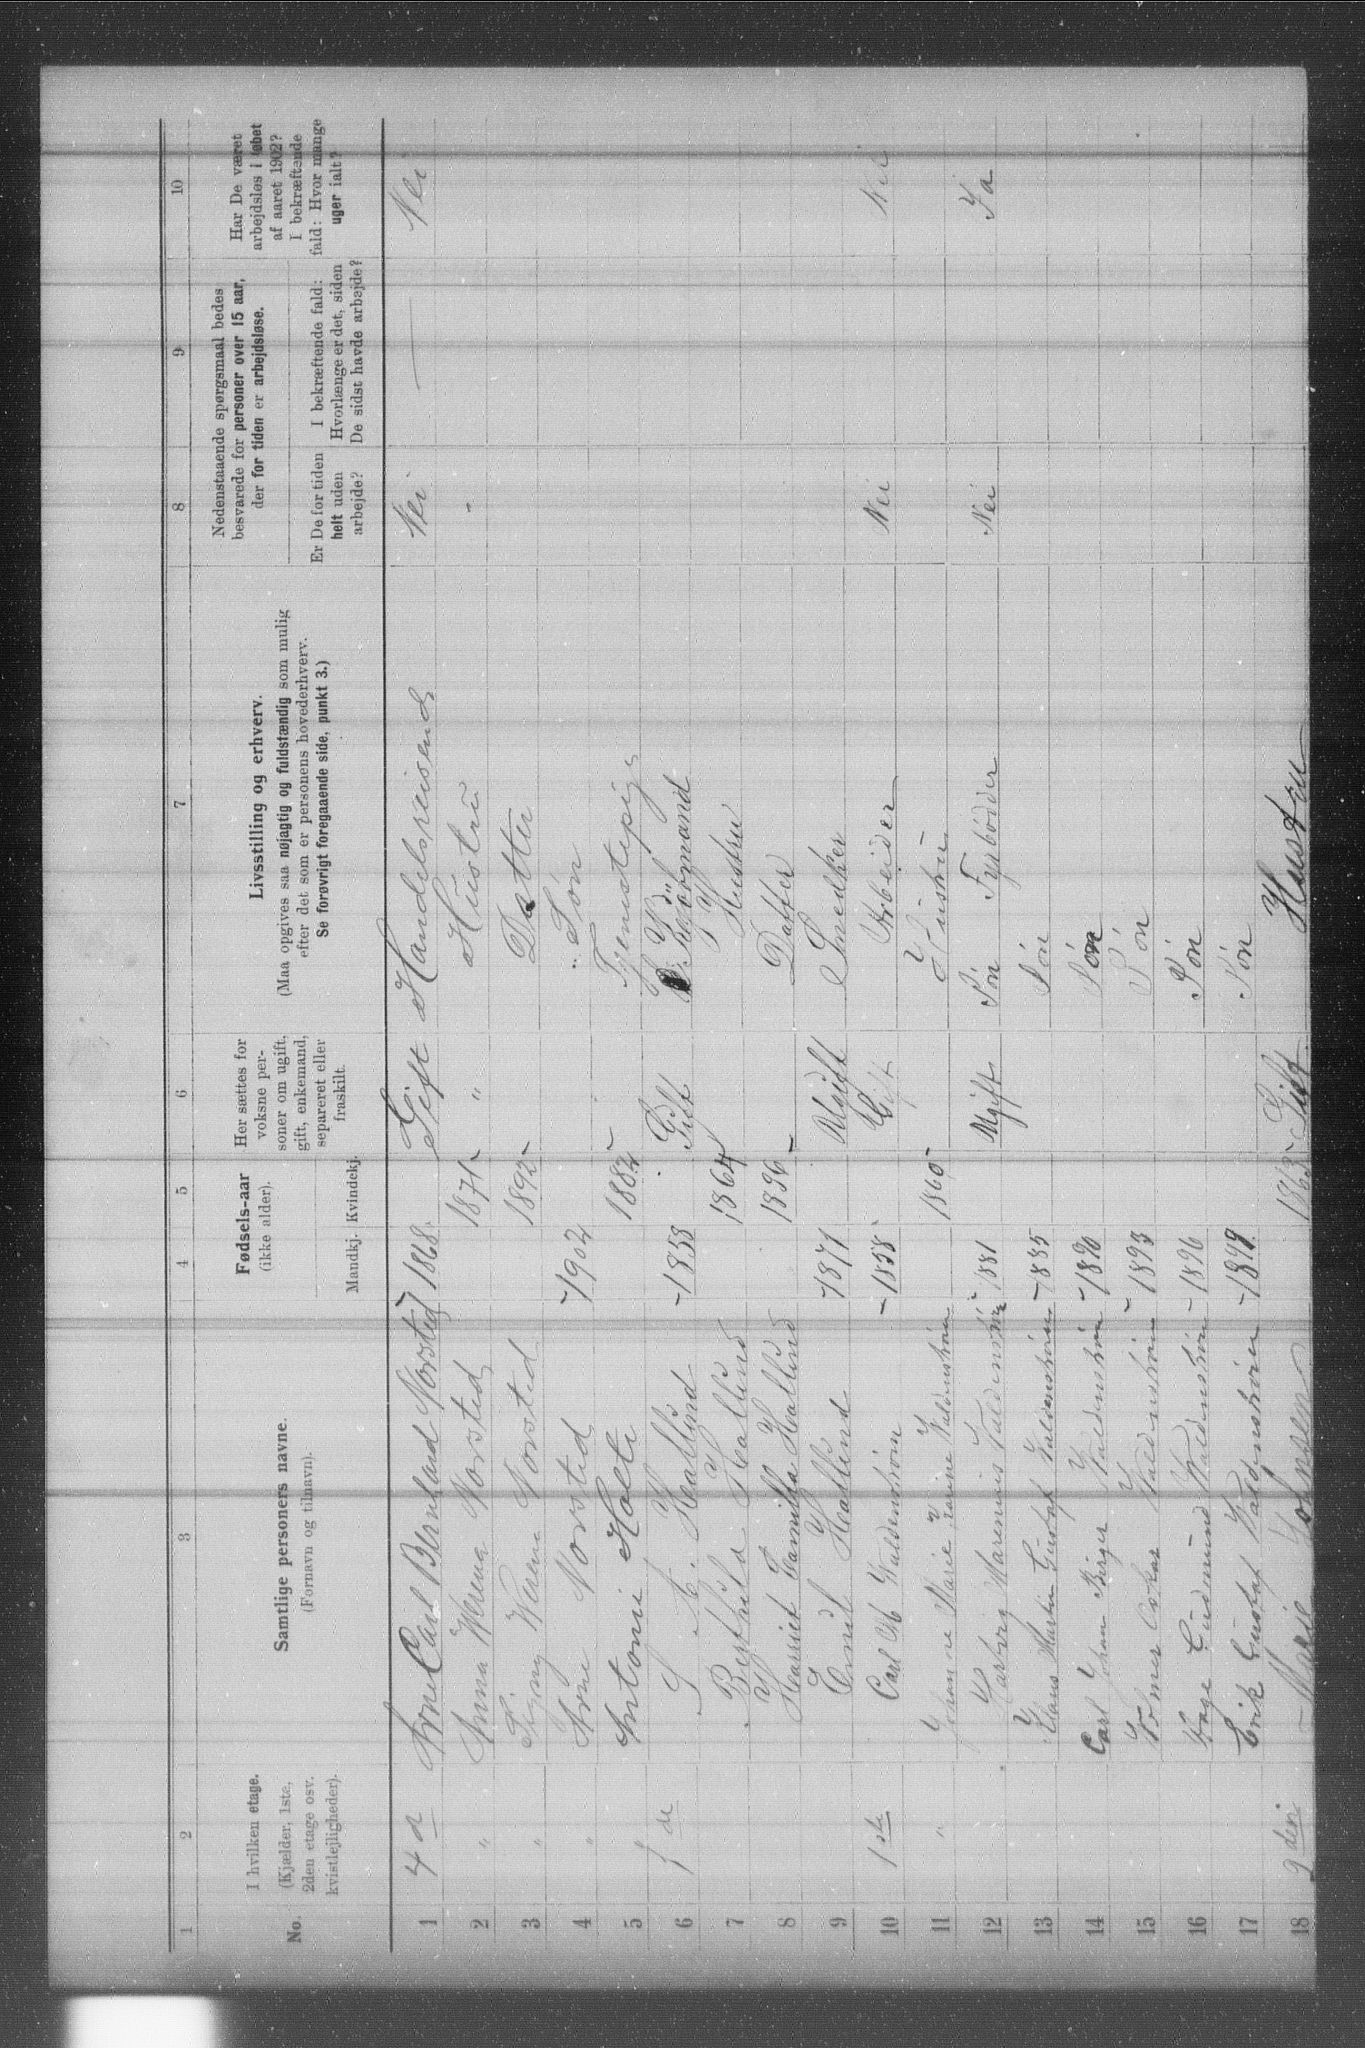 1 2 3 4 5 6 7 8 9 10
No.
I hvilken etage.
(Kjælder, 1ste,
2den etage osv.
kvistlejligheder).
Samtlige personers navne.
(Fornavn og tilnavn).
Fødsels-aar
(ikke alder).
Mandkj. Kvindekj.
Her sættes for
voksne per-
soner om ugift,
gift, enkemand,
separeret eller
fraskilt.
Livsstilling og erhverv.
(Maa opgives saa nøjagtig og fuldstændig som mulig
efter det som er personens hovederhverv.
Se forøvrigt foregaaende side, punkt 3.)
Nedenstaaende spørgsmaal bedes
besvarede for personer over 15 aar,
der for tiden er arbejdsløse.
Er De for tiden
helt uden
arbejde?
I bekræftende fald:
Hvorlænge er det, siden
De sidst havde arbejde?
Har De været
arbejdsløs i løbet
af aaret 1902?
I bekræftende
fald: Hvor mange
uger ialt?
1 4 Carl Bernhard Norsted 1868 Gift Handelsreisende Nei — Nei
2 " Anna Werena Norsted 1871 " Hustru "
3 " Signy Werena Norsted 1892 Datter
4 " Arne Norsted 1902 " Søn
5 Antoni Holte 1882 Tjenestepige
6 Hallind 1853 Gift
7 Hallind 1864 Hustru
8 Harriet Camilla Hallind 1896 Datter
9 Emil Hallind 1871 Ugift Snedker
10 1ste Carl M Valdenstrøm 1858 Gift Arbeider Nei Nei
11 " Marie Valdenstrøm 1860 Hustru
12 Hartvig Marenius Valdenstrøm 1881 Ugift Søn Fyrbødder Nei Ja
13 Martin Gustaf Valdenstrøm 1885 Søn
14 Carl Johan Birger Valdenstrøm 1890 Søn
15 Valdenstrøm 1893 Søn
16 Gudmund Valdenstrøm 1896 Søn
17 Erik Gustaf Valdenstrøm Søn
18 2den Marie Johnsen 1863 Gift Hustru